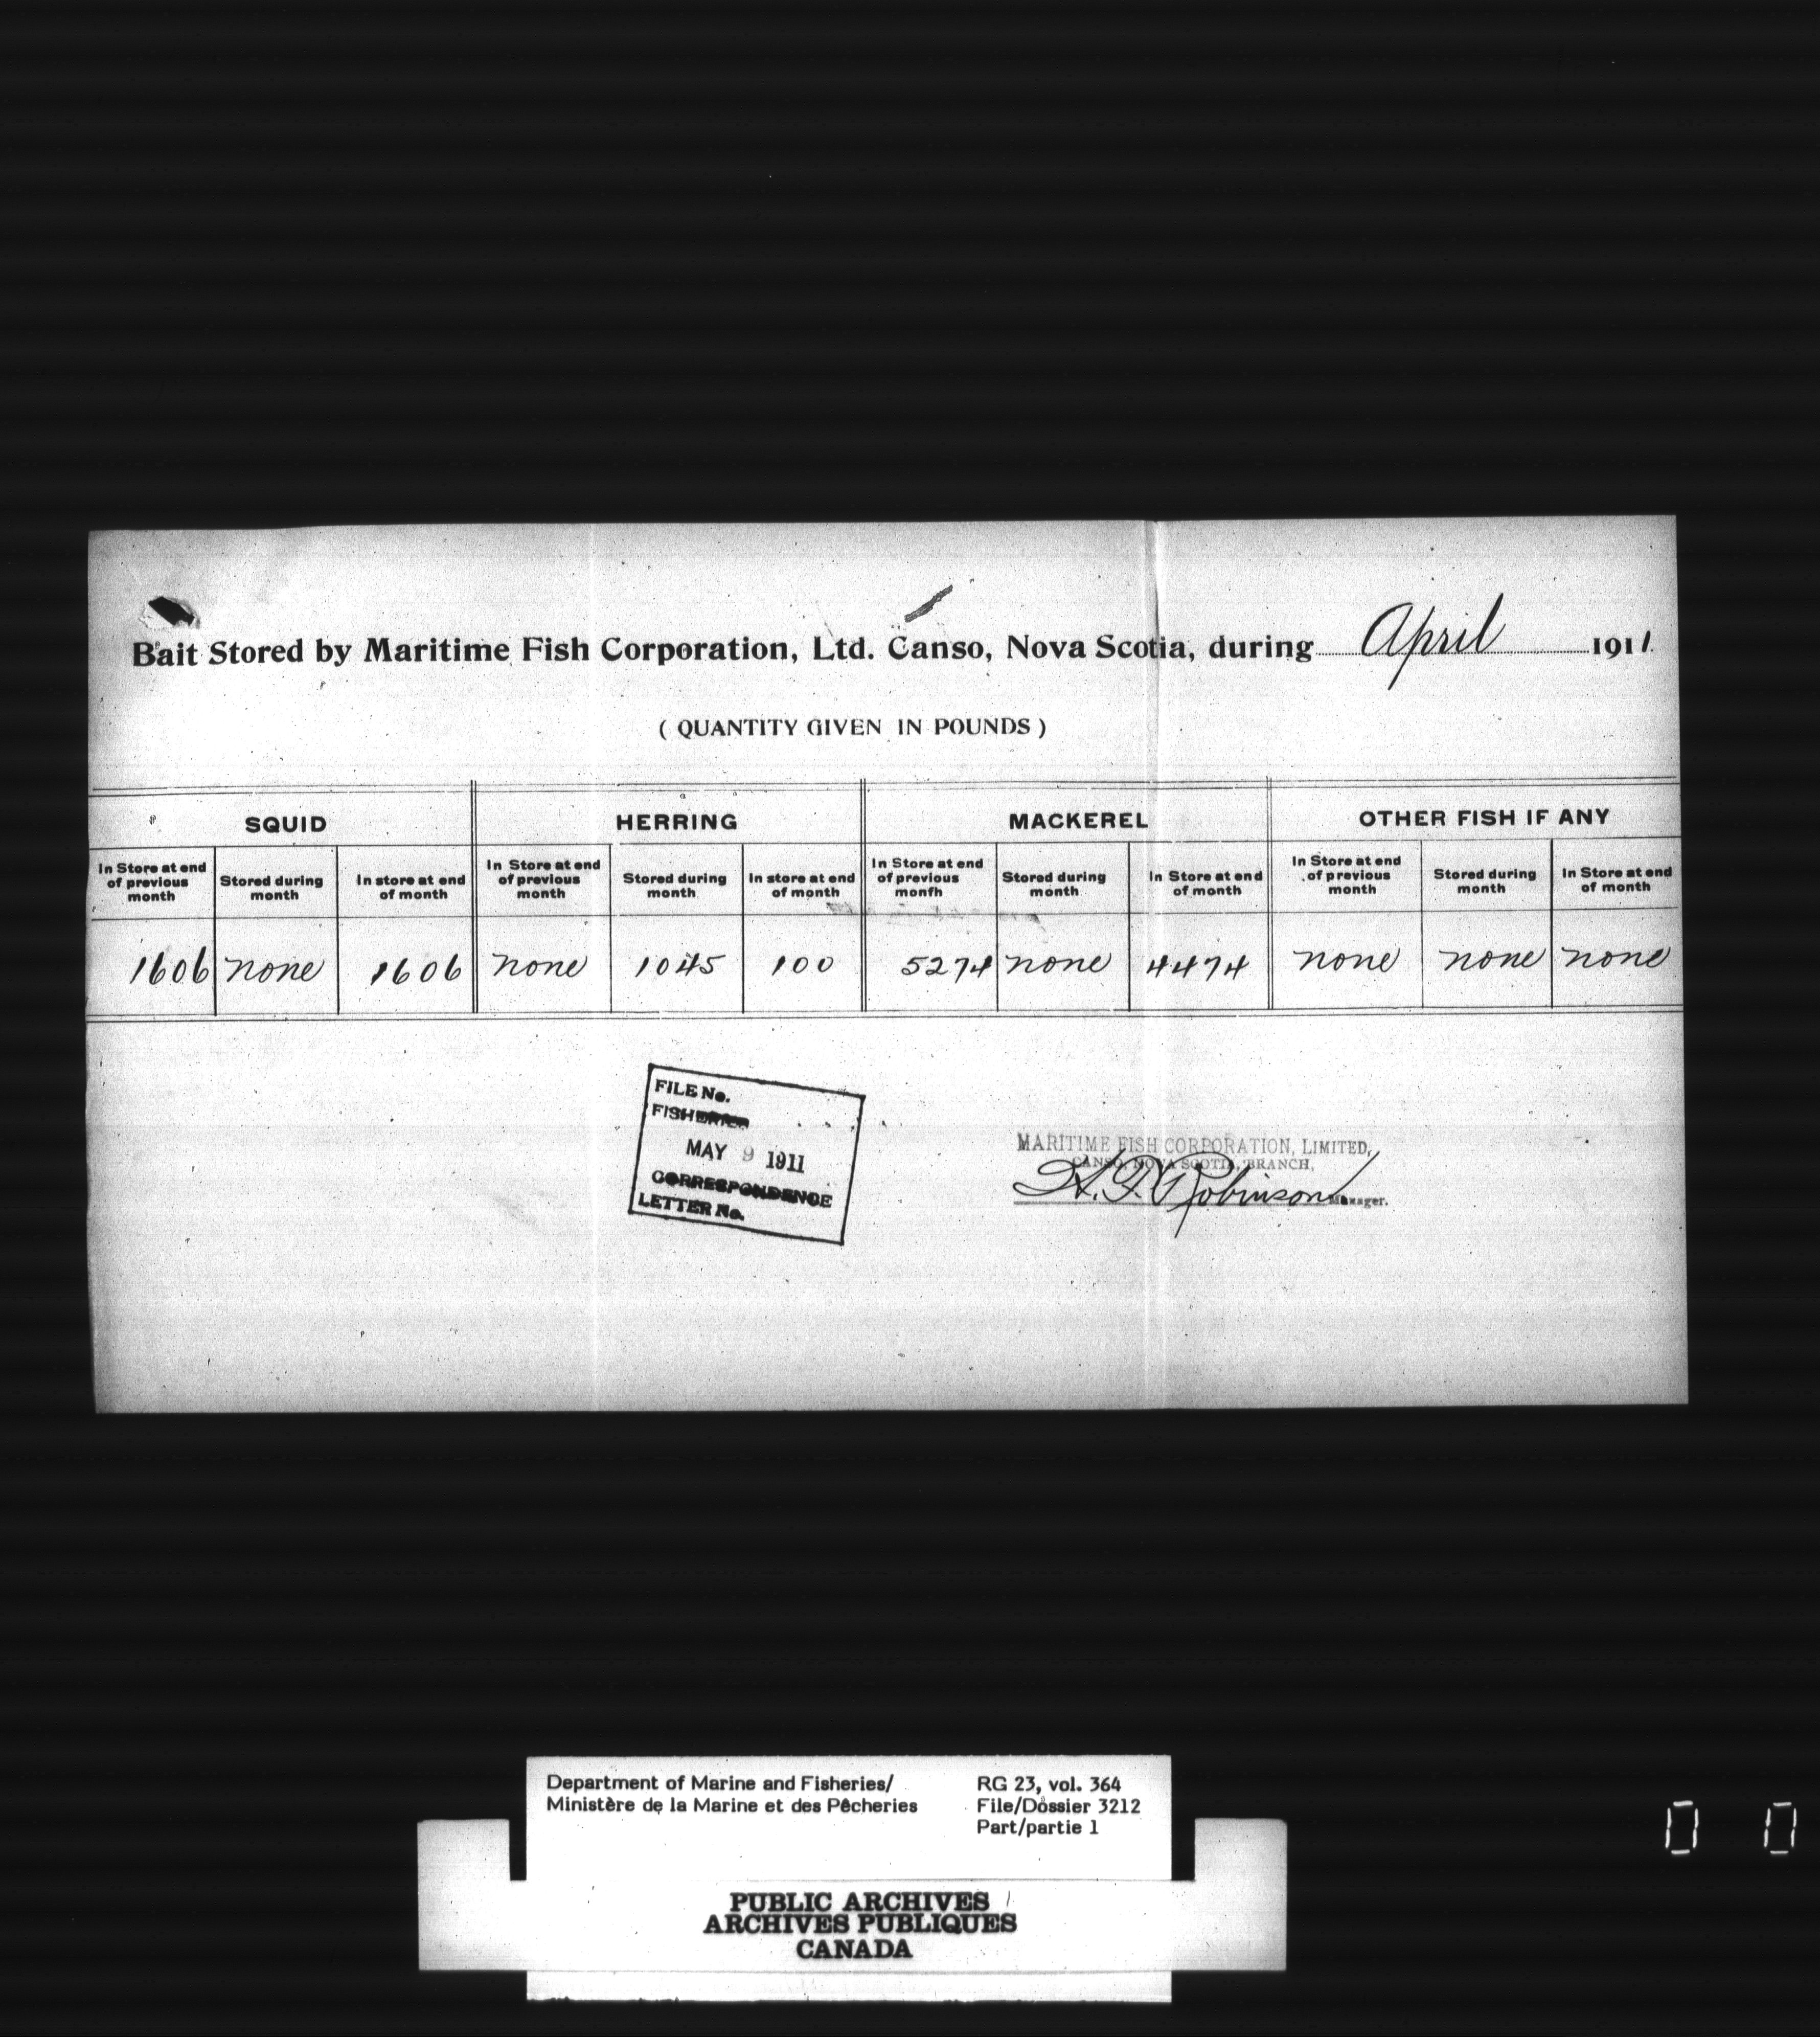 Bait Stored by Maritime Fish Corporation, Ltd. Canso, Nova Scotia, during April 1911.
( QUANTITY GIVEN IN POUNDS )
SQUID HERRING MACKEREL OTHER FISH IF ANY
In Store at end of previous month Stored during month In store at end of month In Store at end of previous month Stored during month In store at end of month In Store at end of previous monfh Stored during month In Store at end of month In Store at end of previous month Stored during month In Store at end of month
1606 none 1606 none 1045 100 5274 none 4474 none none none
FILE No.
FISHERIES
MAY 9 1911
CORRESPONDENCE
LETTER No.
MARITIME FISH CORPORATION, LIMITED,
CANSO, NOVA SCOTIA, BRANCH,
Robinson Manager.
Department of Marine and Fisheries/
Ministère de la Marine et des Pêcheries
RG 23, vol. 364
File/Dossier 3212
Part/partie 1
PUBLIC ARCHIVES
ARCHIVES PUBLIQUES
CANADA
0 0